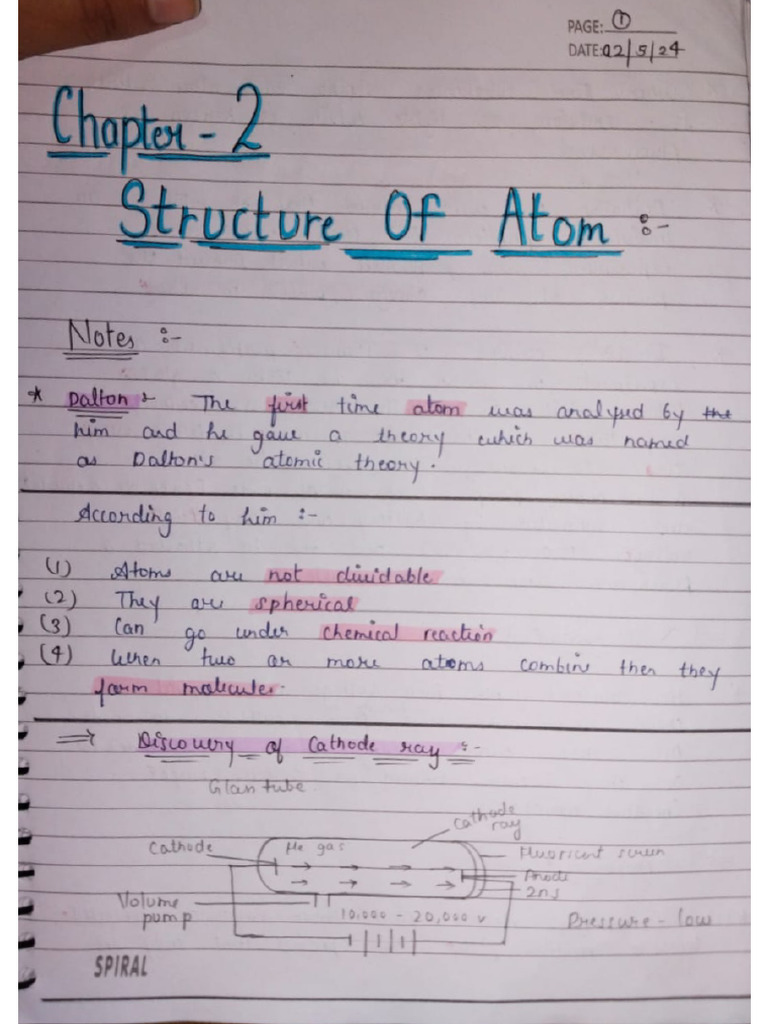 PAGE: 1
DATE: 02/5/24
Chapter - 2
Structure Of Atom :-
Notes :-
* Dalton :- The first time atom was analysed by the
him and he gave a theory which was named
as Dalton's atomic theory.
According to him :-
(1) Atoms are not dividable
(2) They are spherical
(3) Can go under chemical reaction
(4) When two or more atoms combine then they
form molecules.
⇒ Discovery of Cathode ray :-
Glass tube
Cathode ray
Cathode
He gas
Fluoricent screen
Anode
Zns
Volume pump
10,000 - 20,000 v
Pressure - low
SPIRAL